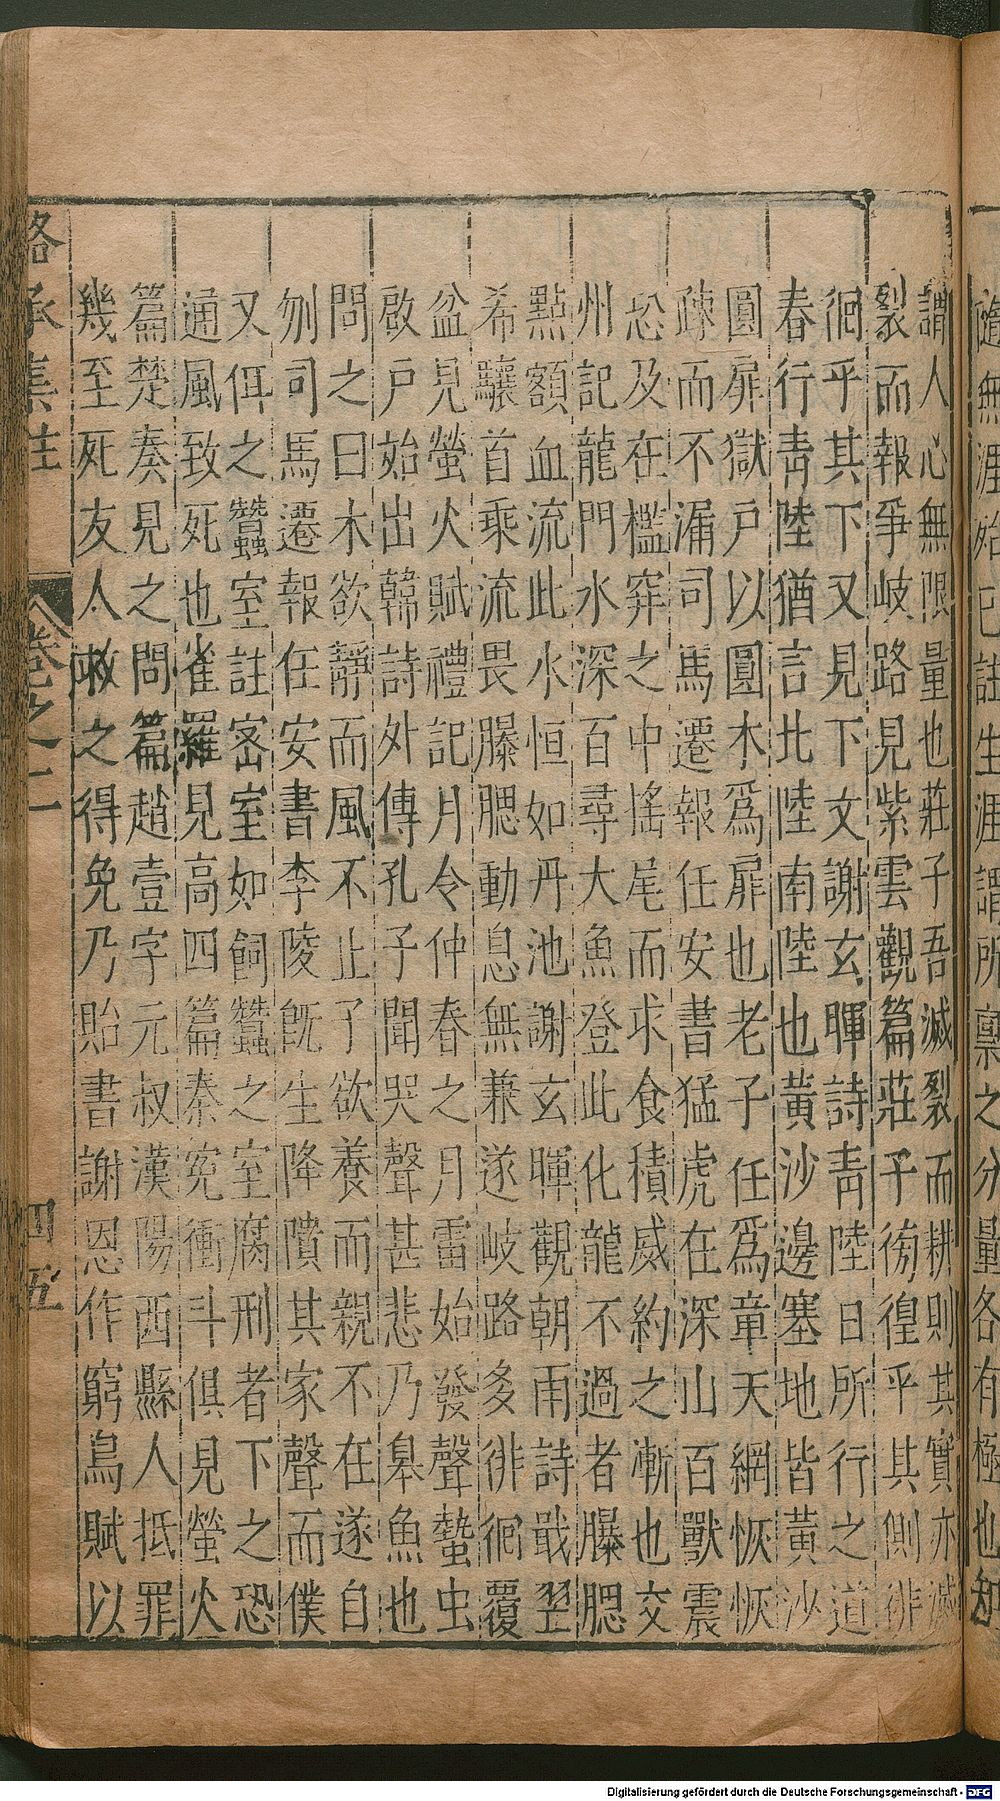 隨無涯殆已註生涯謂所稟之分量各有極也知
謂人心無限量也莊子吾滅裂而耕則其實亦滅
裂而報爭岐路見紫雲觀篇莊子徬徨乎其側徘
徊乎其下又見下文謝玄暉詩青陸日所行之道
春行青陸猶言北陸南陸也黃沙邊塞地皆黃沙
圓扉獄戶以圓木爲扉也老子任爲章天網恢恢
疎而不漏司馬遷報任安書猛虎在深山百獸震
恐及在檻穽之中搖尾而求食積威約之漸也交
州記龍門水深百尋大魚登此化龍不過者曝腮
點額血流此水恒如丹池謝玄暉觀朝雨詩戢翌
希驤首乘流畏曝腮動息無兼遂岐路多徘徊覆
盆見螢火賦禮記月令仲春之月雷始發聲蟄虫
啟戶始出韓詩外傳孔子聞哭聲甚悲乃皋魚也
問之曰木欲靜而風不止子欲養而親不在遂自
刎司馬遷報任安書李陵旣生降隤其家聲而僕
又佴之蠶室註密室如飼蠶之室腐刑者下之恐
通風致死也雀羅見高四篇秦寃衝斗俱見螢火
篇楚奏見之問篇趙壹字元叔漢陽西縣人抵罪
幾至死友人救之得免乃貽書謝恩作窮鳥賦以
駱丞集註 卷之二 四五
Digitalisierung gefördert durch die Deutsche Forschungsgemeinschaft - DFG